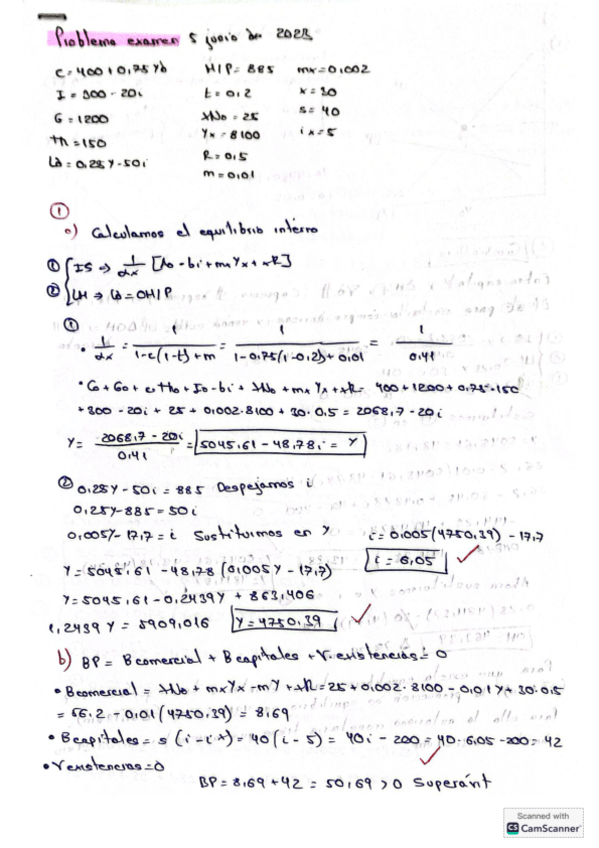 Problema examen 5 junio de 2023
C = 400 + 0,75Yd   M/P = 885   mx = 0,002
I = 300 - 20i   t = 0,2   x = 30
G = 1200   XNo = 25   s = 40
TR = 150   Yx = 8100   ix = 5
Ld = 0,25Y - 50i   R = 0,5
m = 0,01
①
a) Calculamos el equilibrio interno
① IS ⇒ 1/αx [Ao - bi + mxYx + xR]
② LM ⇒ Ld = OM/P
①
• 1/αx = 1/(1-c(1-t)+m) = 1/(1-0,75(1-0,2)+0,01) = 1/0,41
• Co + Go + cTRo + Io - bi + XNo + mxYx + xR = 400 + 1200 + 0,75·150
+ 300 - 20i + 25 + 0,002·8100 + 30·0,5 = 2068,7 - 20i
Y = (2068,7 - 20i)/0,41 = 5045,61 - 48,78i = Y
② 0,25Y - 50i = 885 Despejamos i
0,25Y - 885 = 50i
0,005Y - 17,7 = i Sustituimos en Y   i = 0,005(4750,39) - 17,7
i = 6,05
Y = 5045,61 - 48,78(0,005Y - 17,7)
Y = 5045,61 - 0,2439Y + 863,406
1,2439Y = 5909,016   Y = 4750,39
b) BP = Bcomercial + Bcapitales + V.existencias = 0
• Bcomercial = XNo + mxYx - mY + xR = 25 + 0,002·8100 - 0,01Y + 30·0,5
= 56,2 - 0,01(4750,39) = 8,69
• Bcapitales = s(i - ix) = 40(i - 5) = 40i - 200 = 40·6,05 - 200 = 42
• Vexistencias = 0
BP = 8,69 + 42 = 50,69 > 0 Superávit
Scanned with
CS CamScanner